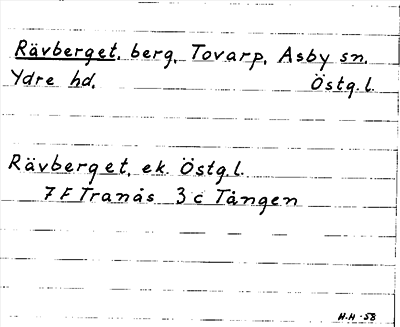 Rävberget, berg, Tovarp, Asby sn.
Ydre hd. Östg.l.
Rävberget, ek. Östg.l.
7 F Tranås 3 c Tången
H.H -58